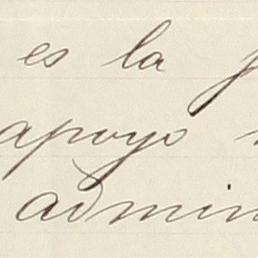 es la
apoyo
admin